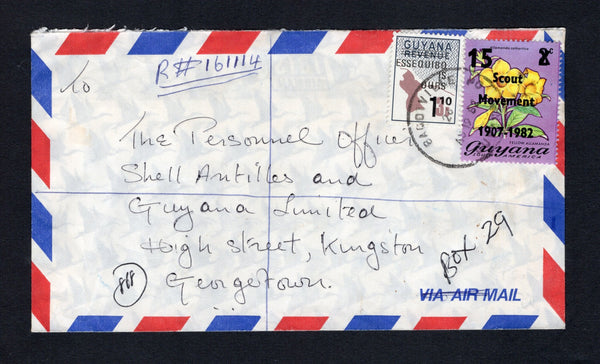 R#161114
To
The Personnel Officer
Shell Antilles and
Guyana Limited
High street, Kingston
Georgetown.
868
Box 29
VIA AIR MAIL
GUYANA
REVENUE
ESSEQUIBO
IS
OURS
1.10
15 2c
Scout
Movement
1907-1982
YELLOW ALLAMANDA
Guyana
SOUTH AMERICA